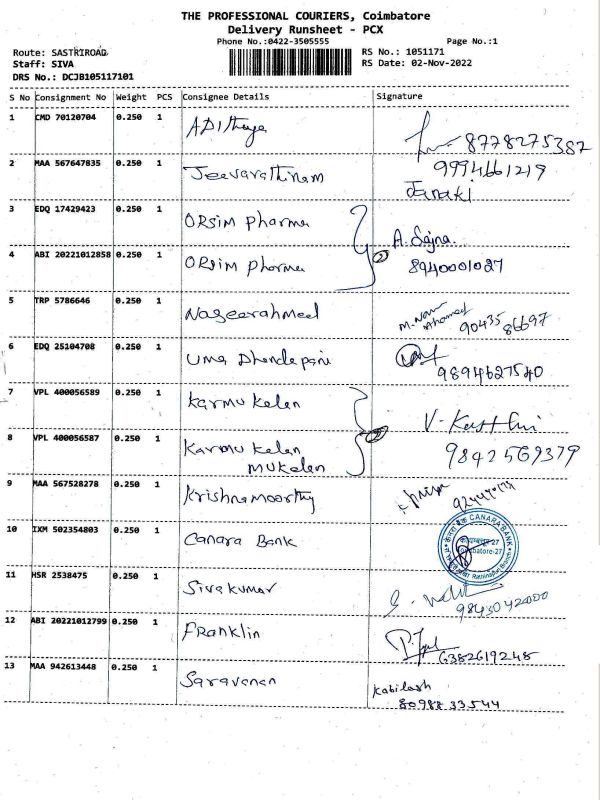 THE PROFESSIONAL COURIERS, Coimbatore
Delivery Runsheet - PCX
Phone No.:0422-3505555 Page No.:1
Route: SASTRIROAD RS No.: 1051171
Staff: SIVA RS Date: 02-Nov-2022
DRS No.: DCJB105117101
S No Consignment No Weight PCS Consignee Details Signature
1 CMD 70120704 0.250 1 ADIthya 8778275382
2 MAA 567647835 0.250 1 Jeevarathinam 9994661219
Janaki
3 EDQ 17429423 0.250 1 ORSim Pharma A. Sajna.
4 ABI 20221012858 0.250 1 ORSim Pharma 2 8940001027
5 TRP 5786646 0.250 1 Nazeerahmed M. Ahamed 90435 86697
6 EDQ 25104708 0.250 1 Uma Dhandapani 9894627540
7 VPL 400056589 0.250 1 Karmukelan V-
8 VPL 400056587 0.250 1 Karmukelan 2 9842569379
Mukelan
9 MAA 567528278 0.250 1 Krishnamoorthy
10 IXM 502354803 0.250 1 Canara Bank CANARA BANK
Coimbatore-27
Rathinapuri Branch
11 HSR 2538475 0.250 1 Sivakumar 9843042000
12 ABI 20221012799 0.250 1 Franklin 6382619248
13 MAA 942613448 0.250 1 Saravanan Kabilash
80988 33544